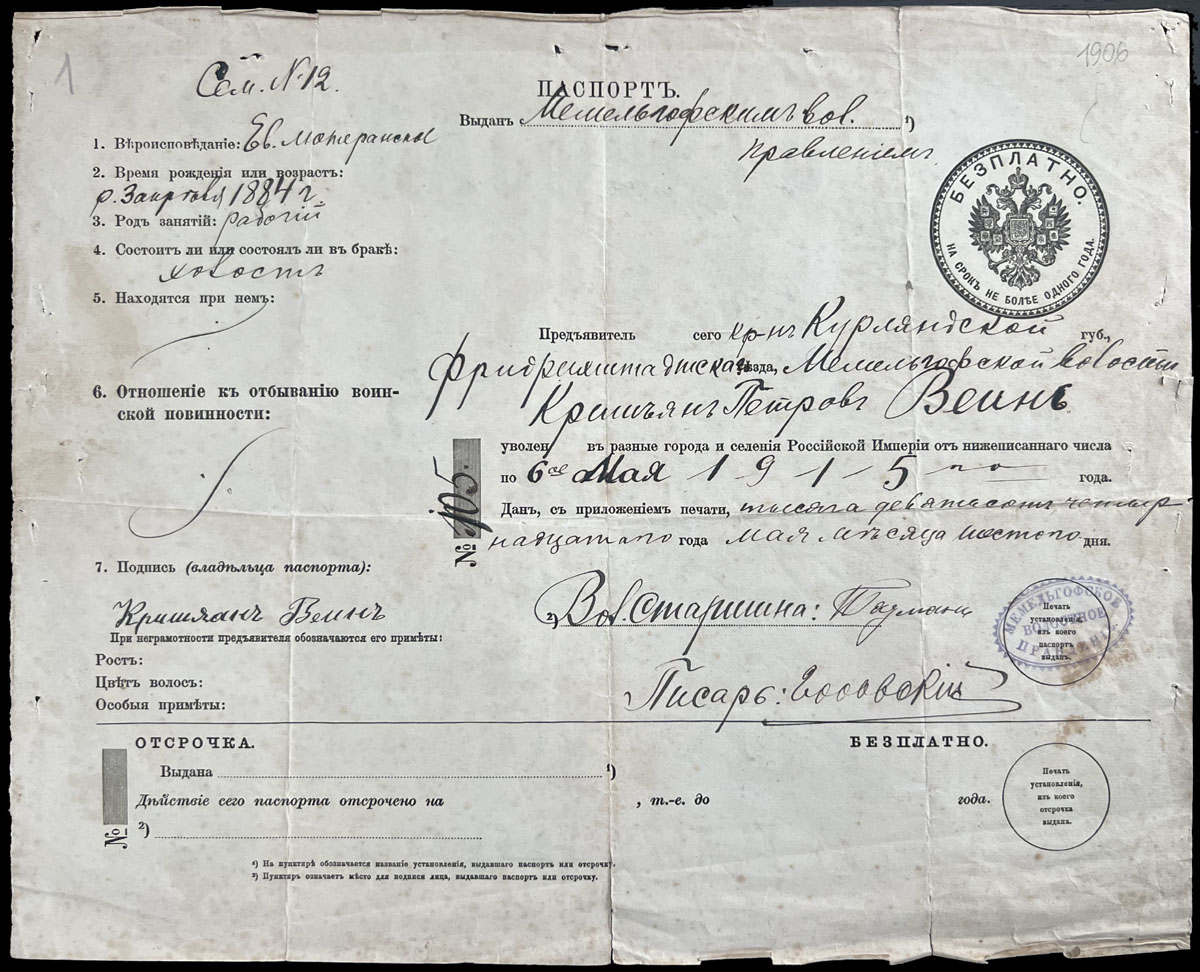 1
1906
Сем. №12.
ПАСПОРТЪ.
Выданъ Мемельгофскимъ вол. ¹)
правленіемъ
БЕЗПЛАТНО.
НА СРОКЪ НЕ БОЛѢЕ ОДНОГО ГОДА.
1. Вѣроисповѣданіе: Ев. лютеранск
2. Время рожденія или возрастъ:
1884 г.
3. Родъ занятій: рабочій
4. Состоитъ ли или состоялъ ли въ бракѣ:
холостъ
5. Находятся при немъ:
Предъявитель сего кр-нъ Курляндской губ.,
Фридрихштадтска уѣзда, Мемельгофской волости
6. Отношеніе къ отбыванію воин-
ской повинности:
Кришьянъ Петровъ Веинь
уволен въ разные города и селенія Россійской Имперіи отъ нижеписаннаго числа
по 6ое Мая 1915 го года.
№ 105.
Данъ, съ приложеніемъ печати, тысяча девятьсотъ четыр
надцатаго года мая мѣсяца шестого дня.
7. Подпись (владѣльца паспорта):
Кришянъ Веинъ
²) Вол. Старшина:
МЕМЕЛЬГОФСКОЕ
ВОЛОСТНОЕ
ПРАВЛЕНІЕ
Печать
установленія,
изъ коего
паспортъ
выданъ.
При неграмотности предъявителя обозначаются его примѣты:
Ростъ:
Цвѣтъ волосъ:
Особыя примѣты:
Писарь:
ОТСРОЧКА.
БЕЗПЛАТНО.
Выдана ¹)
Дѣйствіе сего паспорта отсрочено на , т.-е. до года.
№
²)
Печать
установленія,
изъ коего
отсрочка
выдана.
¹) На пунктирѣ обозначается названіе установленія, выдавшаго паспортъ или отсрочку.
²) Пунктиръ означаетъ мѣсто для подписи лица, выдавшаго паспортъ или отсрочку.